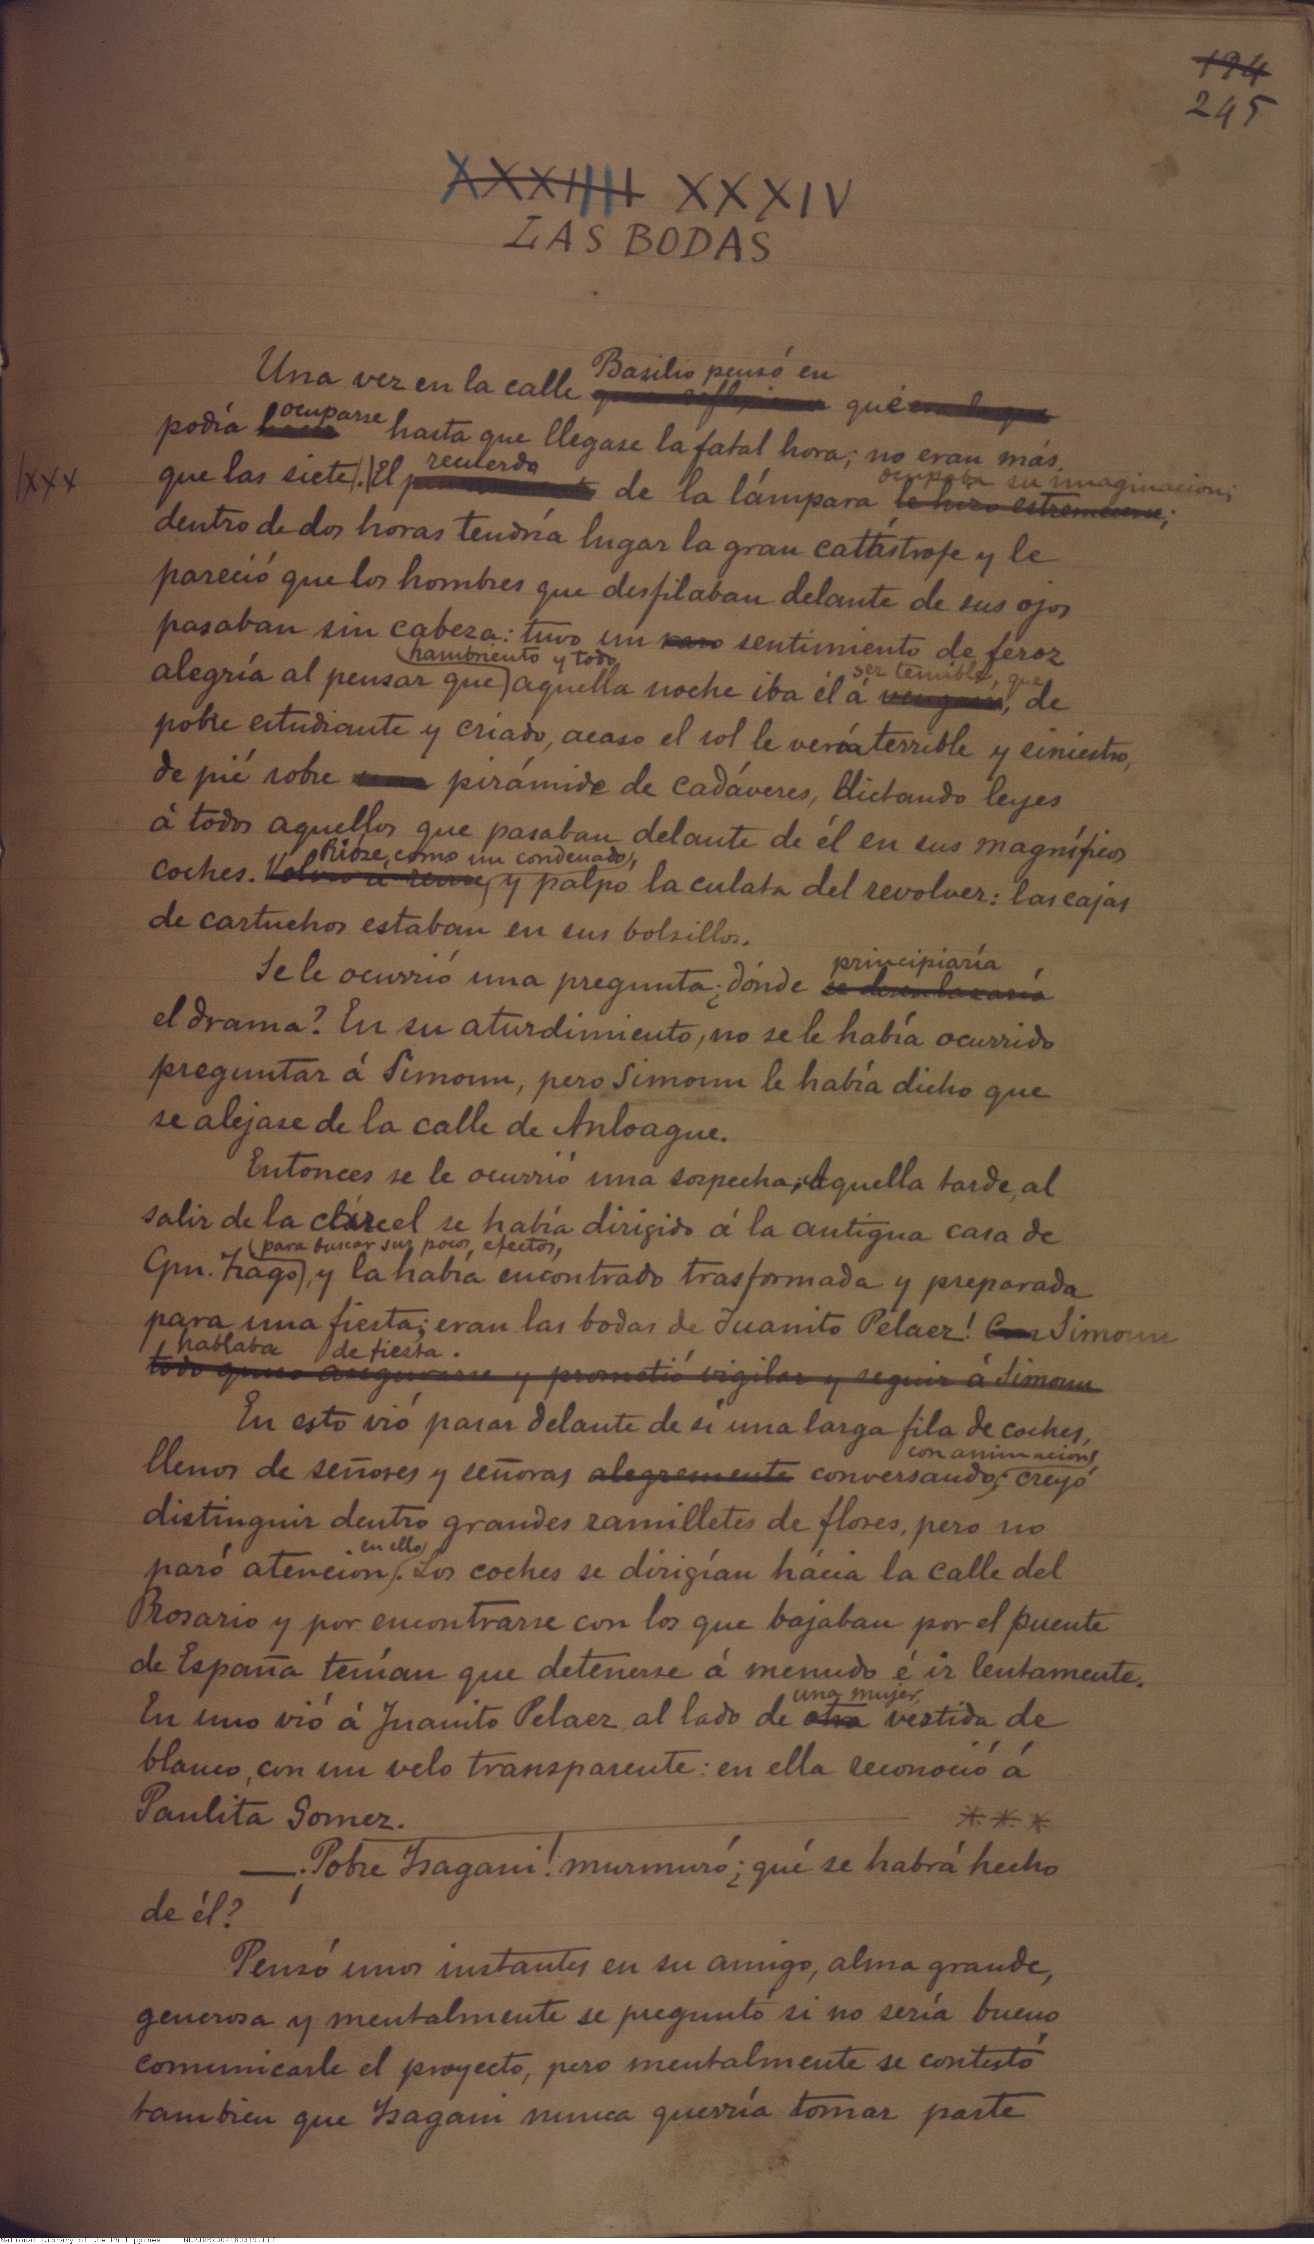 194
245
XXXIIII XXXIV
LAS BODAS
Basilio pensó en
Una vez en la calle qué era lo que
ocuparse
podía hasta que llegase la fatal hora; no eran más
recuerdo ocupaba su imaginacion;
xxx que las siete. El de la lámpara le hizo estremecerse;
dentro de dos horas tendría lugar la gran catástrofe y le
pareció que los hombres que desfilaban delante de sus ojos
pasaban sin cabeza: tuvo un raro sentimiento de feroz
hambriento y todo ser temible, que
alegría al pensar que aquella noche iba él á vengarse, de
pobre estudiante y criado, acaso el sol le vería terrible y siniestro,
de pié sobre una pirámide de cadáveres, dictando leyes
á todos aquellos que pasaban delante de él en sus magníficos
Rióse, como un condenado,
coches. Volvió á reirse, y palpó la culata del revolver: las cajas
de cartuchos estaban en sus bolsillos.
principiaría
Se le ocurrió una pregunta ¿dónde se desenlazaría
el drama? En su aturdimiento, no se le había ocurrido
preguntar á Simoun, pero Simoun le había dicho que
se alejase de la calle de Anloague.
Entonces se le ocurrió una sospecha; aquella tarde, al
salir de la cárcel se había dirigido á la antigua casa de
para buscar sus pocos efectos,
Cpn. Tiago, y la había encontrado trasformada y preparada
para una fiesta; eran las bodas de Juanito Pelaez! Simoun
hablaba de fiesta.
todo quiso asegurarse y prometió vigilar y seguir á Simoun
En esto vió pasar delante de sí una larga fila de coches,
con animacion
llenos de señores y señoras alegremente conversando; creyó
distinguir dentro grandes ramilletes de flores, pero no
en ello
paró atencion. Los coches se dirigían hácia la calle del
Rosario y por encontrarse con los que bajaban por el puente
de España tenían que detenerse á menudo é ir lentamente.
una mujer
En uno vió á Juanito Pelaez al lado de otra vestida de
blanco, con un velo transparente: en ella reconoció á
Paulita Gomez. * * *
—¡Pobre Isagani! murmuró; ¿qué se habrá hecho
de él?
Pensó unos instantes en su amigo, alma grande,
generosa y mentalmente se preguntó si no sería bueno
comunicarle el proyecto, pero mentalmente se contestó
tambien que Isagani nunca querría tomar parte
National Library of the Philippines